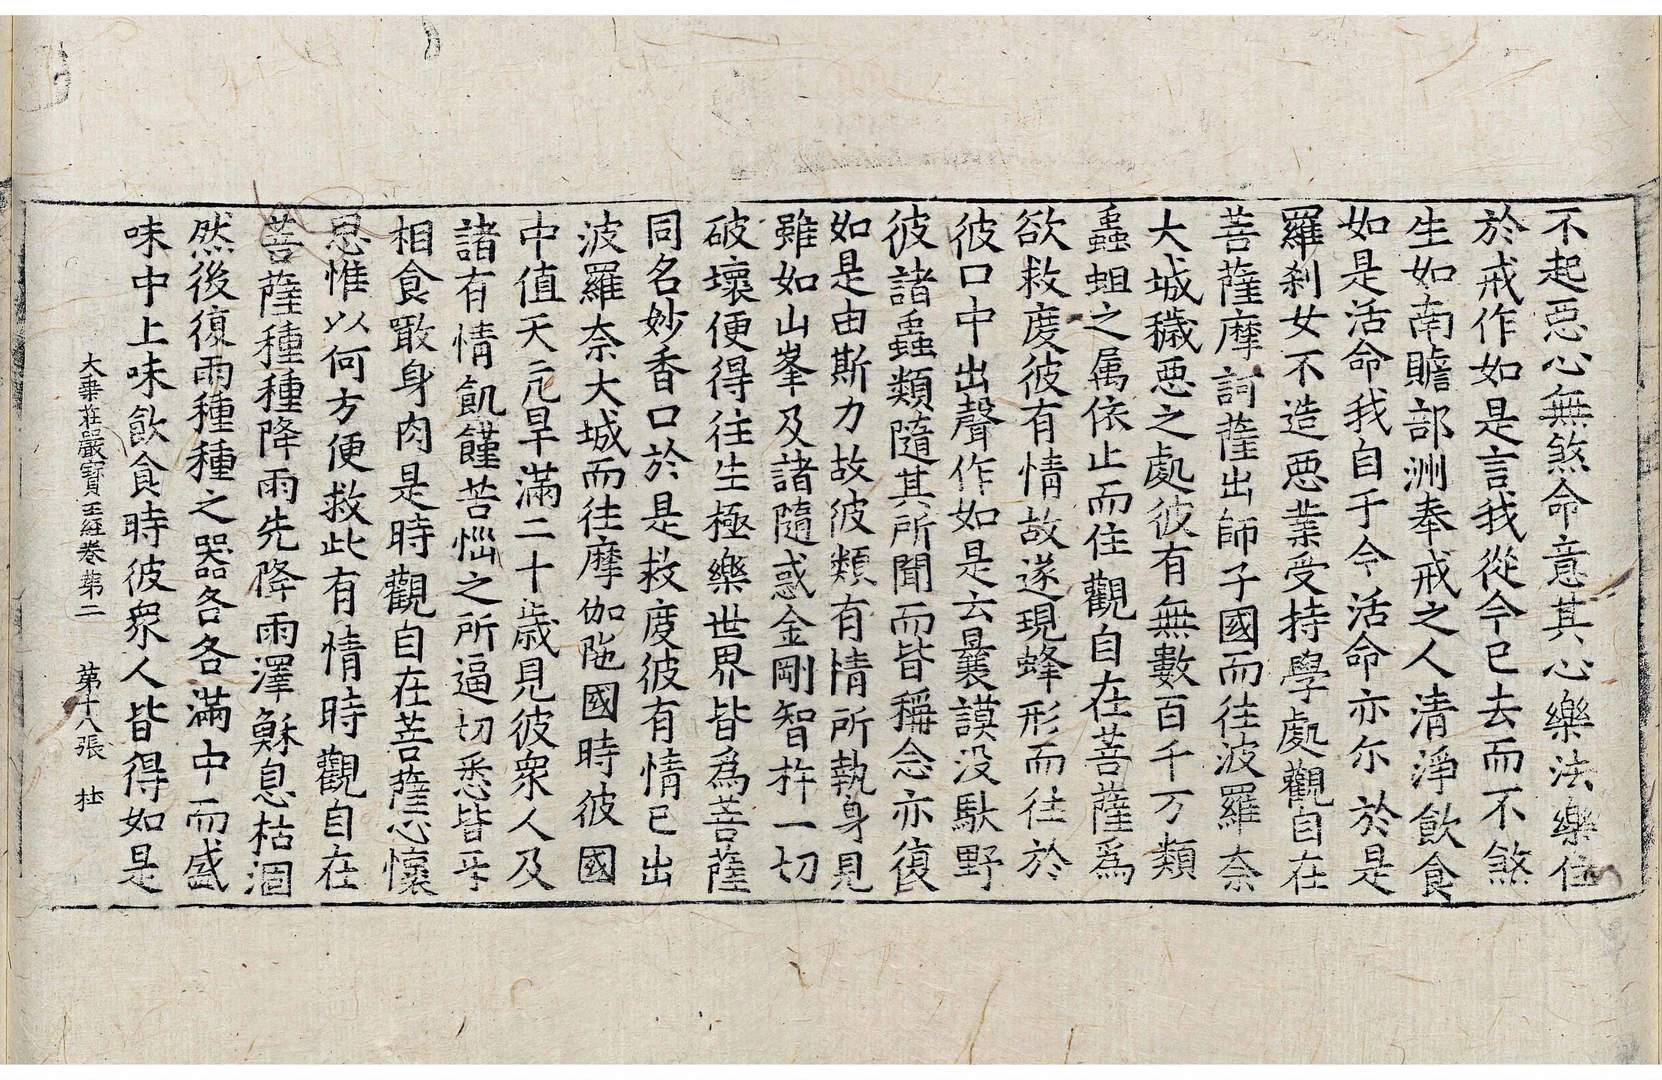 不起惡心無煞命意其心樂法樂住
於戒作如是言我從今已去而不煞
生如南贍部洲奉戒之人清淨飮食
如是活命我自于今活命亦尒於是
羅刹女不造惡業受持學處觀自在
菩薩摩訶薩出師子國而往波羅奈
大城穢惡之處彼有無數百千万類
蟲蛆之属依止而住觀自在菩薩爲
欲救度彼有情故遂現蜂形而往於
彼口中出聲作如是云曩謨没馱野
彼諸蟲類隨其所聞而皆稱念亦復
如是由斯力故彼類有情所執身見
雖如山峯及諸隨惑金剛智杵一切
破壞便得往生極樂世界皆爲菩薩
同名妙香口於是救度彼有情已出
波羅奈大城而往摩伽陁國時彼國
中值天亢旱滿二十歲見彼衆人及
諸有情飢饉苦惱之所逼切悉皆互
相食噉身肉是時觀自在菩薩心懷
思惟以何方便救此有情時觀自在
菩薩種種降雨先降雨澤穌息枯涸
然後復雨種種之器各各滿中而盛
味中上味飮食時彼衆人皆得如是
大乗莊嚴寶王經卷第二 第十八張 杜